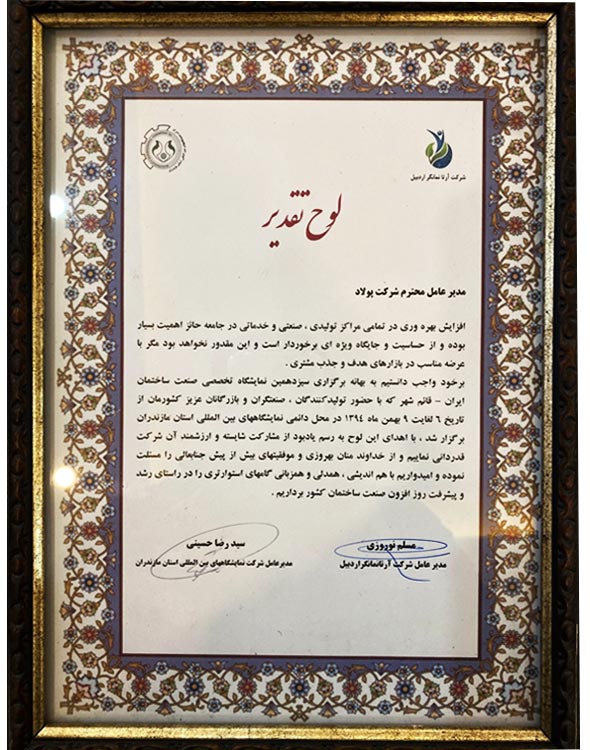 شرکت آرتا نمانگر اردبیل
لوح تقدیر
مدیر عامل محترم شرکت پولاد
افزایش بهره وری در تمامی مراکز تولیدی ، صنعتی و خدماتی در جامعه حائز اهمیت بسیار
بوده و از حساسیت و جایگاه ویژه ای برخوردار است و این مقدور نخواهد بود مگر با
عرضه مناسب در بازارهای هدف و جذب مشتری .
برخود واجب دانستیم به بهانه برگزاری سیزدهمین نمایشگاه تخصصی صنعت ساختمان
ایران - قائم شهر که با حضور تولیدکنندگان ، صنعتگران و بازرگانان عزیز کشورمان از
تاریخ ۶ لغایت ۹ بهمن ماه ۱۳۹۴ در محل دائمی نمایشگاههای بین المللی استان مازندران
برگزار شد ، با اهدای این لوح به رسم یادبود از مشارکت شایسته و ارزشمند آن شرکت
قدردانی نماییم و از خداوند منان بهروزی و موفقیتهای بیش از پیش جنابعالی را مسئلت
نموده و امیدواریم با هم اندیشی ، همدلی و همزبانی گامهای استوارتری را در راستای رشد
و پیشرفت روز افزون صنعت ساختمان کشور برداریم .
مسلم نوروزی
مدیر عامل شرکت آرتانمانگراردبیل
سید رضا حسینی
مدیرعامل شرکت نمایشگاههای بین المللی استان مازندران